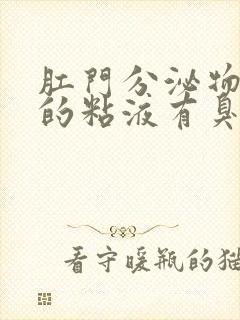 肛門分泌物
的粘液有臭
看守暖瓶的猫